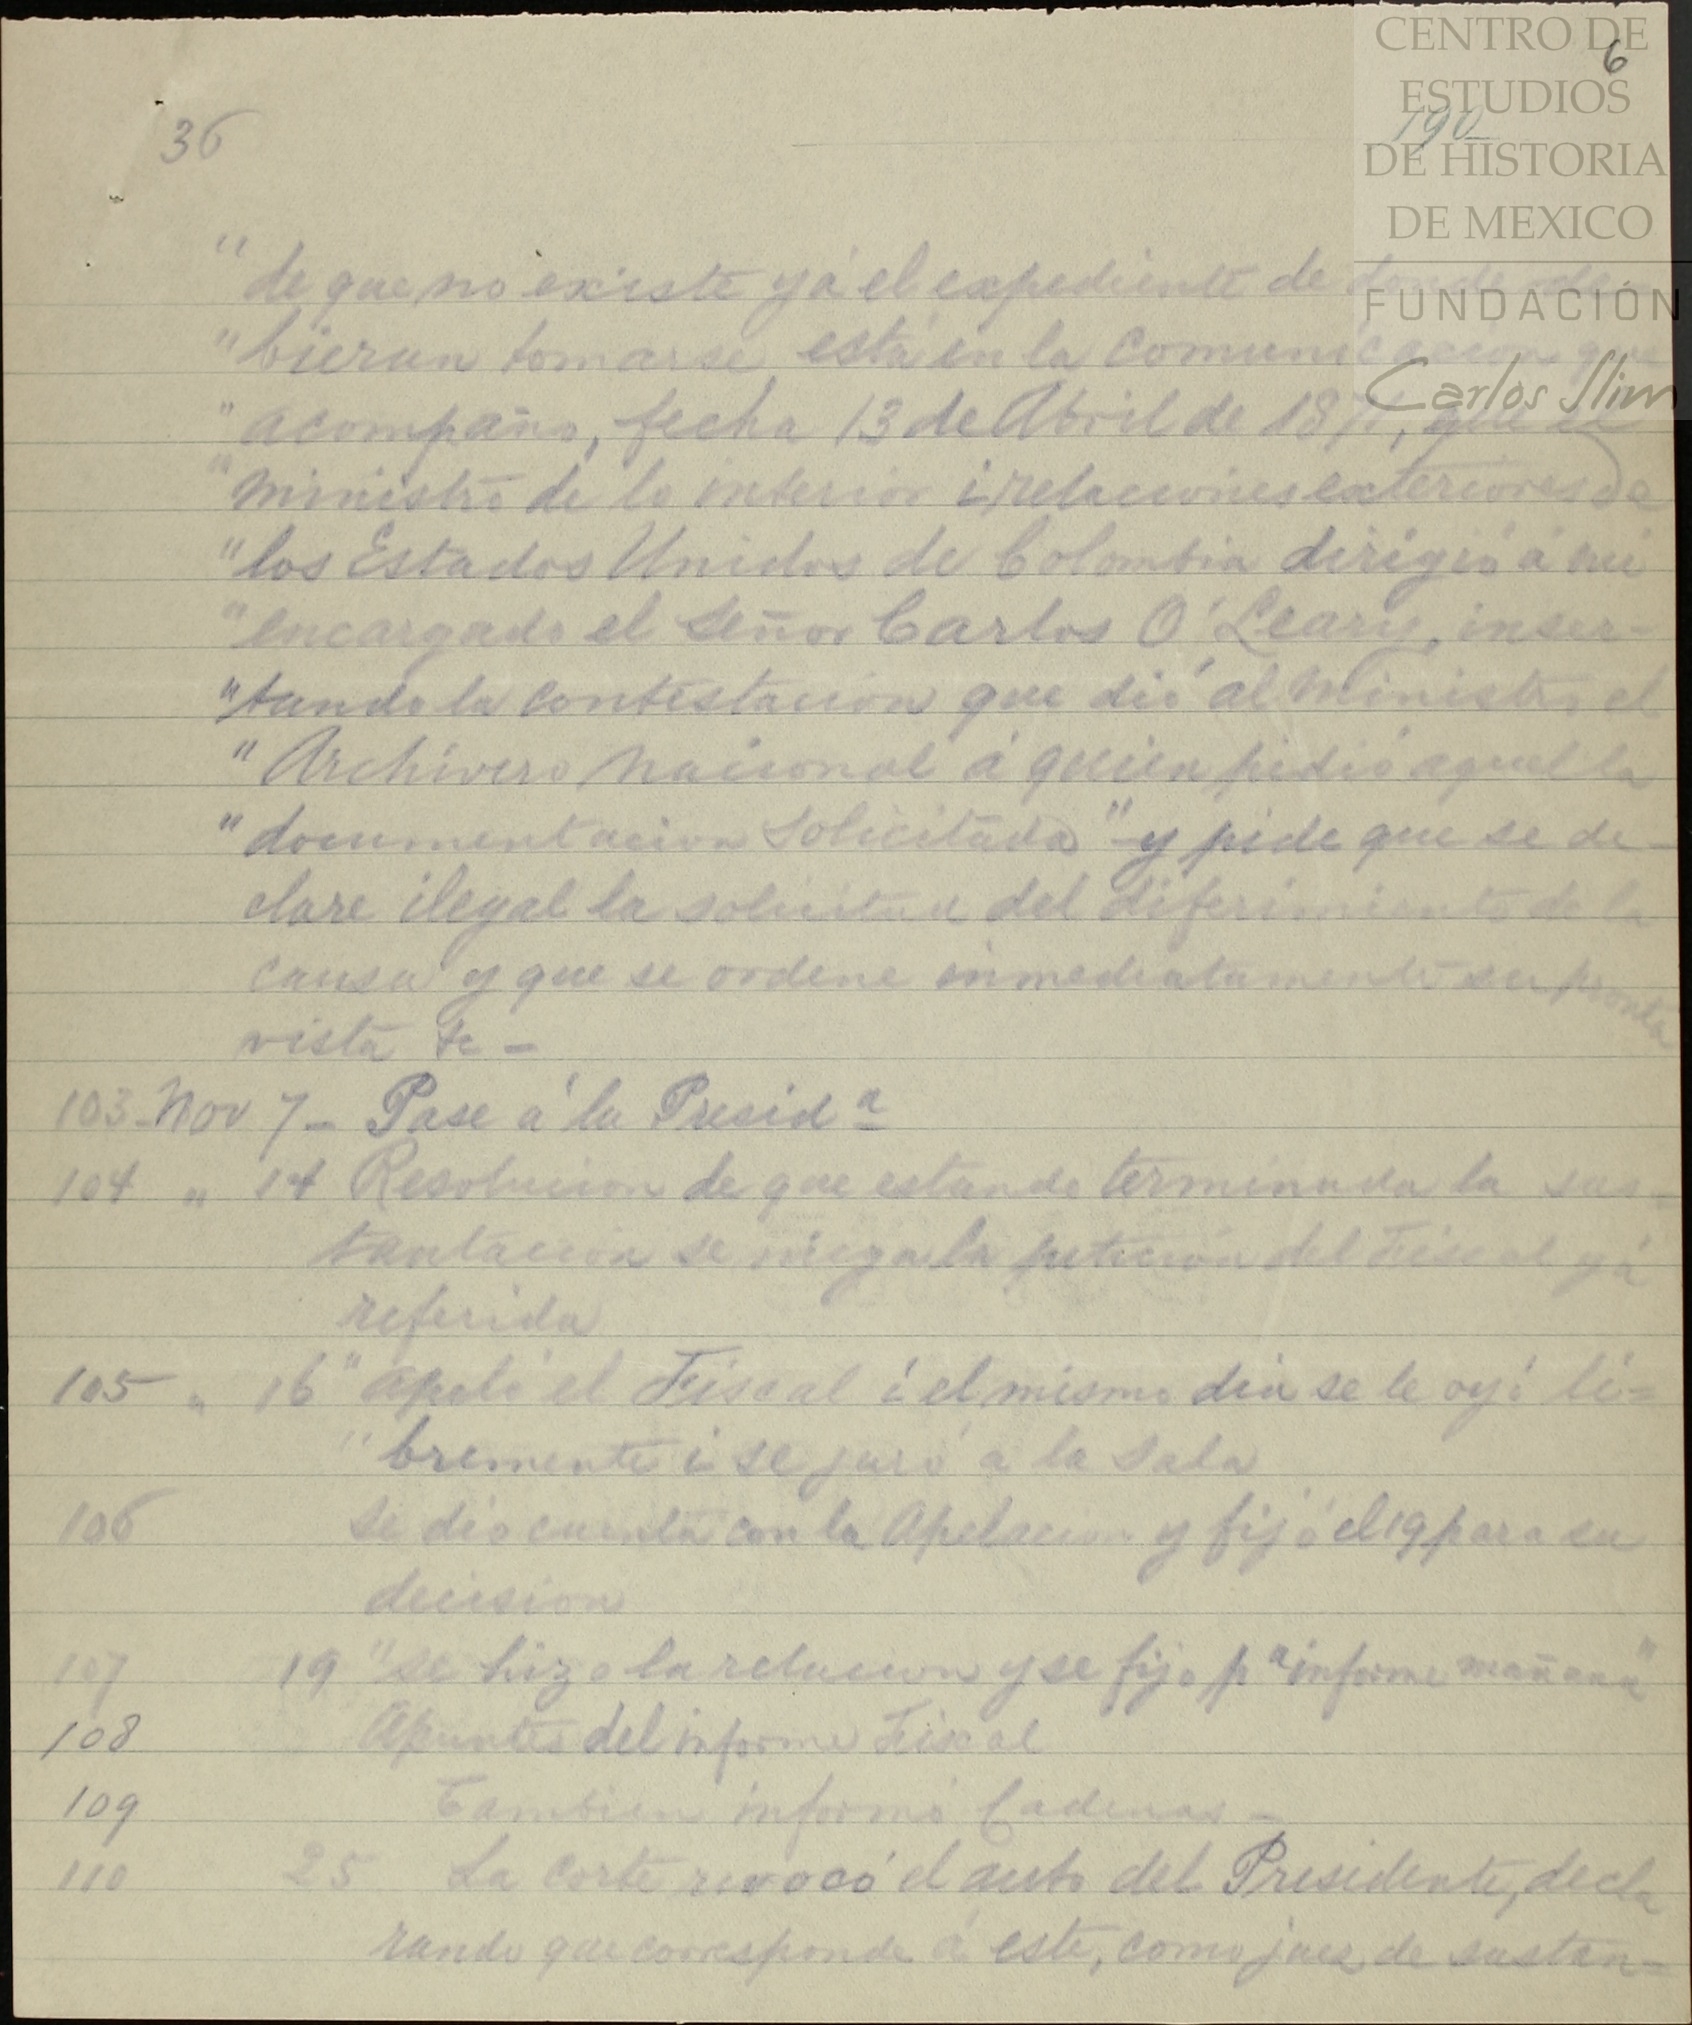 CENTRO DE
ESTUDIOS
DE HISTORIA
DE MEXICO
FUNDACIÓN
Carlos Slim
6
190
36
"de que no existe yá el expediente de donde de-
"bieran tomarse, está en la comunicacion que
"acompaño, fecha 13 de Abril de 1871, que el
"Ministro de lo interior i relaciones exteriores de
"los Estados Unidos de Colombia dirigió á mi
"encargado el Señor Carlos O'Leary, inser-
"tando la contestacion que dió al Ministro el
"Archivero Nacional á quien pidió aquel la
"documentacion solicitada" y pide que se de-
clare ilegal la solicitud del diferimiento de la
causa y que se ordene inmediatamente su pronta
vista &c -
103 - Nov 7 - Pase á la Presidª
104 " 14 Resolucion de que estando terminada la sus=
tantacion se niega la peticion del Fiscal yá
referida
105 " 16 "apeló el Fiscal i el mismo dia se le oyó li=
"bremente i se a la Sala
106 Se dió cuenta con la Apelacion y fijó el 19 para su
decision
107 19 "se hizo la relacion y se fijo pª informe mañana"
108 Apuntes del informe Fiscal
109 Tambien informó Cadenas -
110 25 La Corte revocó el auto del Presidente, decla
rando que corresponde á este, como juez de sustan=